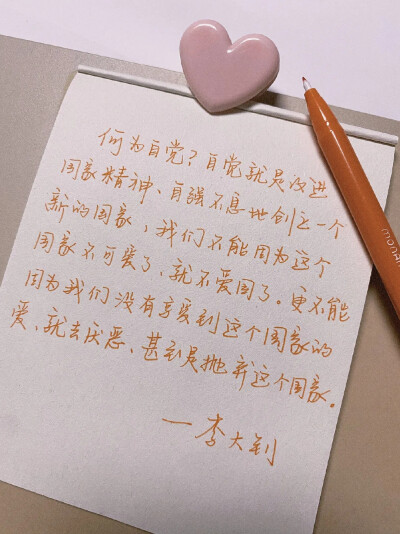 何为自觉？自觉就是改进
国家精神、自强不息地创立一个
新的国家，我们不能因为这个
国家不可爱了、就不爱国了。更不能
因为我们没有享受到这个国家的
爱、就去厌恶、甚至是抛弃这个国家。
—李大钊
monami